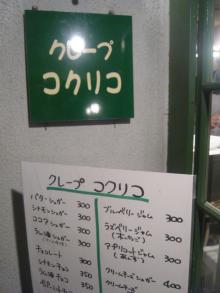 クレープ
コクリコ
クレープ コクリコ
バターシュガー 300
シナモンシュガー 300
ココアシュガー 300
ラム酒シュガー 300
チョコレート 300
シナモンチョコ 350
ラム酒チョコ 350
350
ブルーベリージャム 300
ラズベリージャム 300
(木いちご)
アプリコットジャム 300
(あんず)
クリームチーズシュガー 400
クリームチーズ